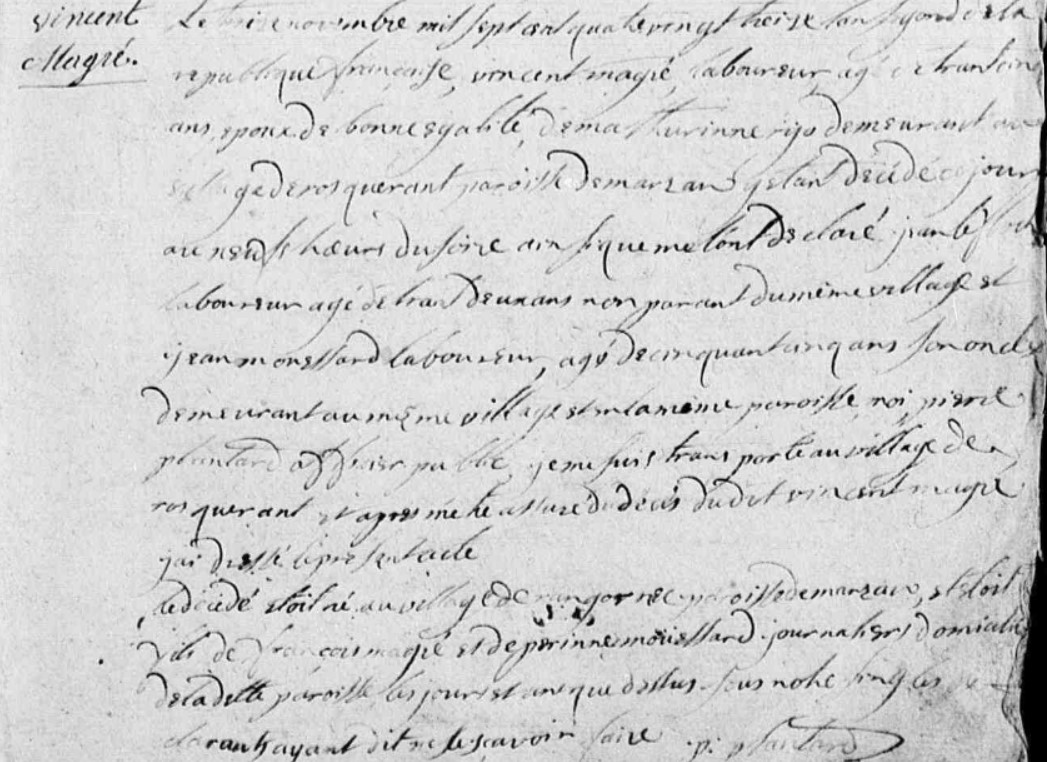 vincent
Magré.
Le treise novembre mil sept cent quatre vingt treise lan segond de la
republique françaisse, vincent magré, laboureur, agé de trante cinq
ans, epoux de bonne egalité, de mathurinne rijo demeurant au
village de rosquerant paroisse de marzan y etant décidé ce jour
au neufs hœurs du soire ainsi que me lont declaré jean le
laboureur agé de trant deux ans non parant du même village et
jean monessard laboureur, agé de cinquant cinq ans son oncle
demeurant au même village et en la même paroisse, moi pierre
plantard officier public, je me suis transporté au village de
rosquerant et apres mêtre assuré du décès dudit vincent magré
jai dressé le présent acte
le décidé etoit né au village de rangornec paroisse de marzan, et etoit
fils de françois magré et de perinne moüessard journaliers domicilié
de la ditte paroisse les jour et an que dessus sous notre singles de
clarants ayant dit ne le sçavoir faire p. plantard